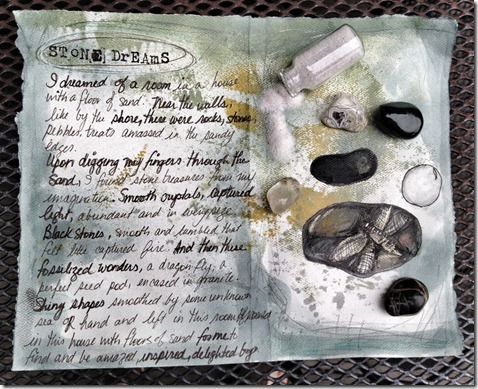 STONE DREAMS
I dreamed of a room in a house
with a floor of sand. Near the walls,
like by the shore, there were rocks, stones,
pebbles, treats amassed in the sandy
edges.
Upon digging my fingers through the
Sand, I found stone treasures from my
imagination. Smooth crystals, captured
light, abundant and in every size
Black stones, smooth and tumbled that
felt like captured fire. And then these
fossilized wonders, a dragonfly, a
perfect seed pod, encased in granite.
shapes smoothed by some unknown
sea or hand and left in this room
in this house with floors of sand for me to
find and be amazed, inspired, delighted by